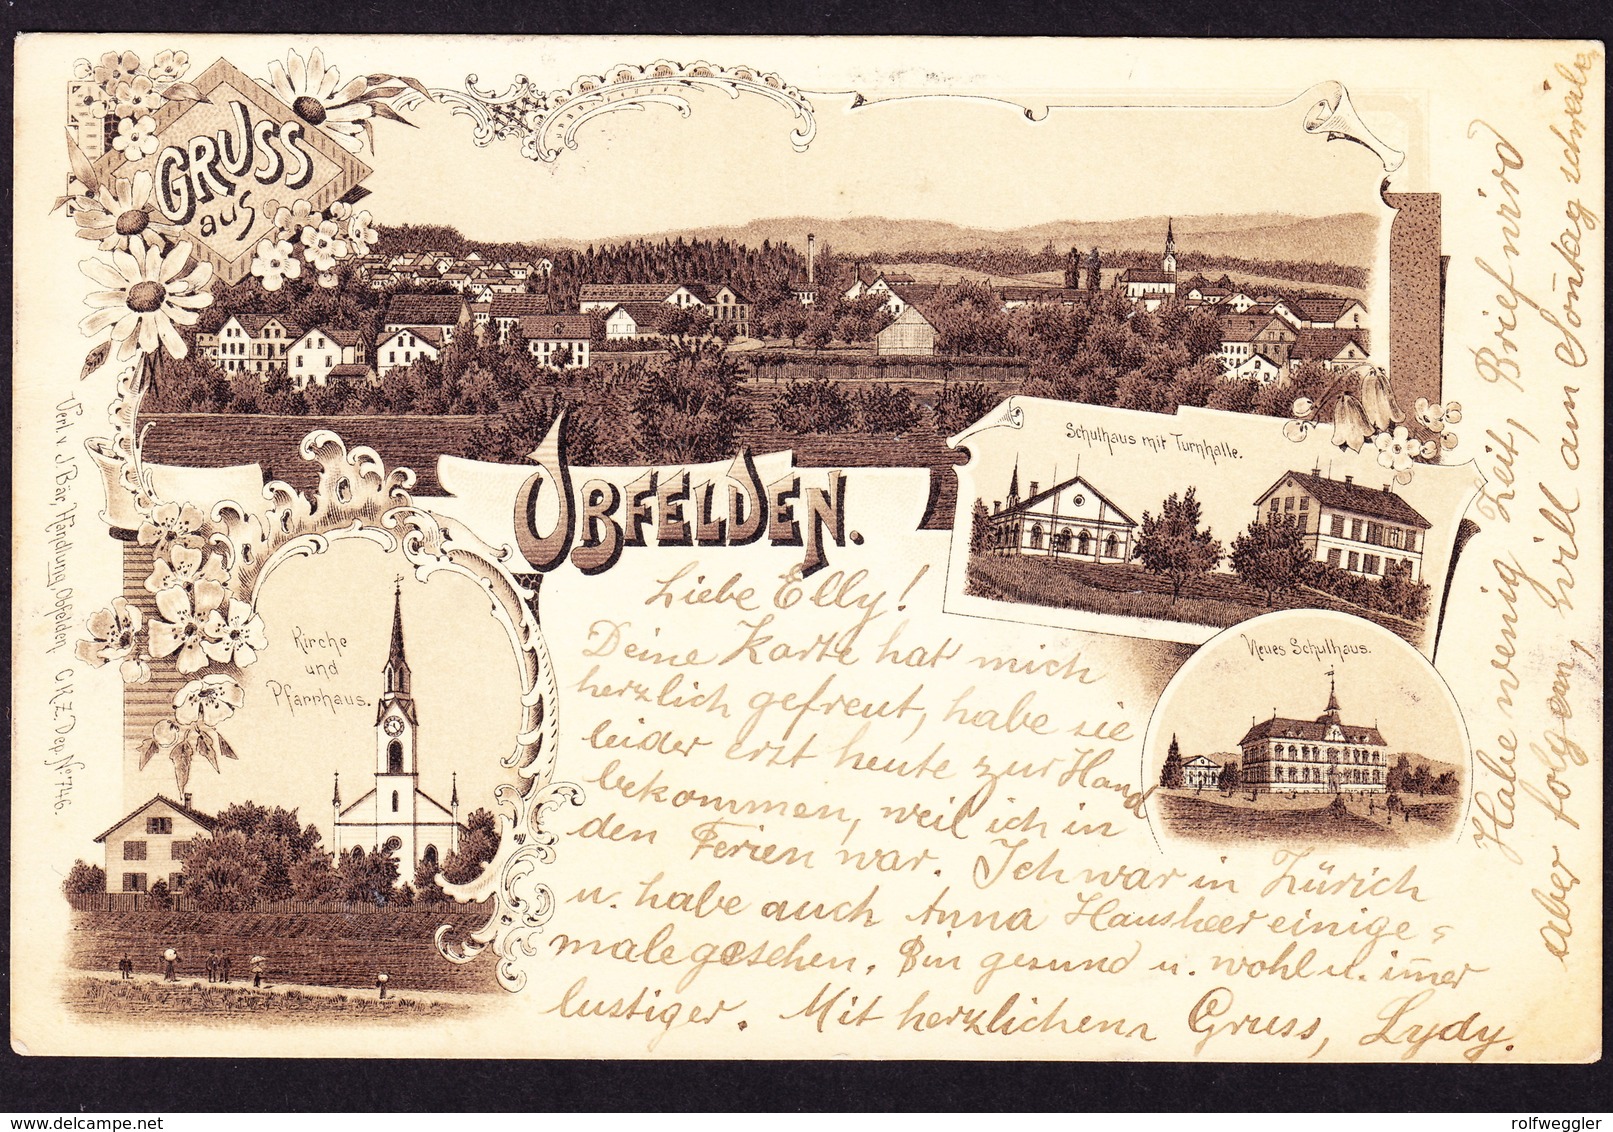 GRUSS
aus
OBFELDEN.
Schulhaus mit Turnhalle.
Neues Schulhaus.
Kirche
und
Pfarrhaus.
Verl. v. J Bär, Handlung, Obfelden. C.K.Z. Dep. No 746.
Liebe Elly!
Deine Karte hat mich
herzlich gefreut, habe sie
leider erst heute zur Hand
bekommen, weil ich in
den Ferien war. Ich war in Zürich
u. habe auch Anna Hausheer einige=
malegesehen. Bin gesund u. wohl u. im̅er
lustiger. Mit herzlichem Gruss, Lydy.
Habe wenig Zeit, Brief wird
aber folgen, will am Son̅tag schreibe
rolfweggler